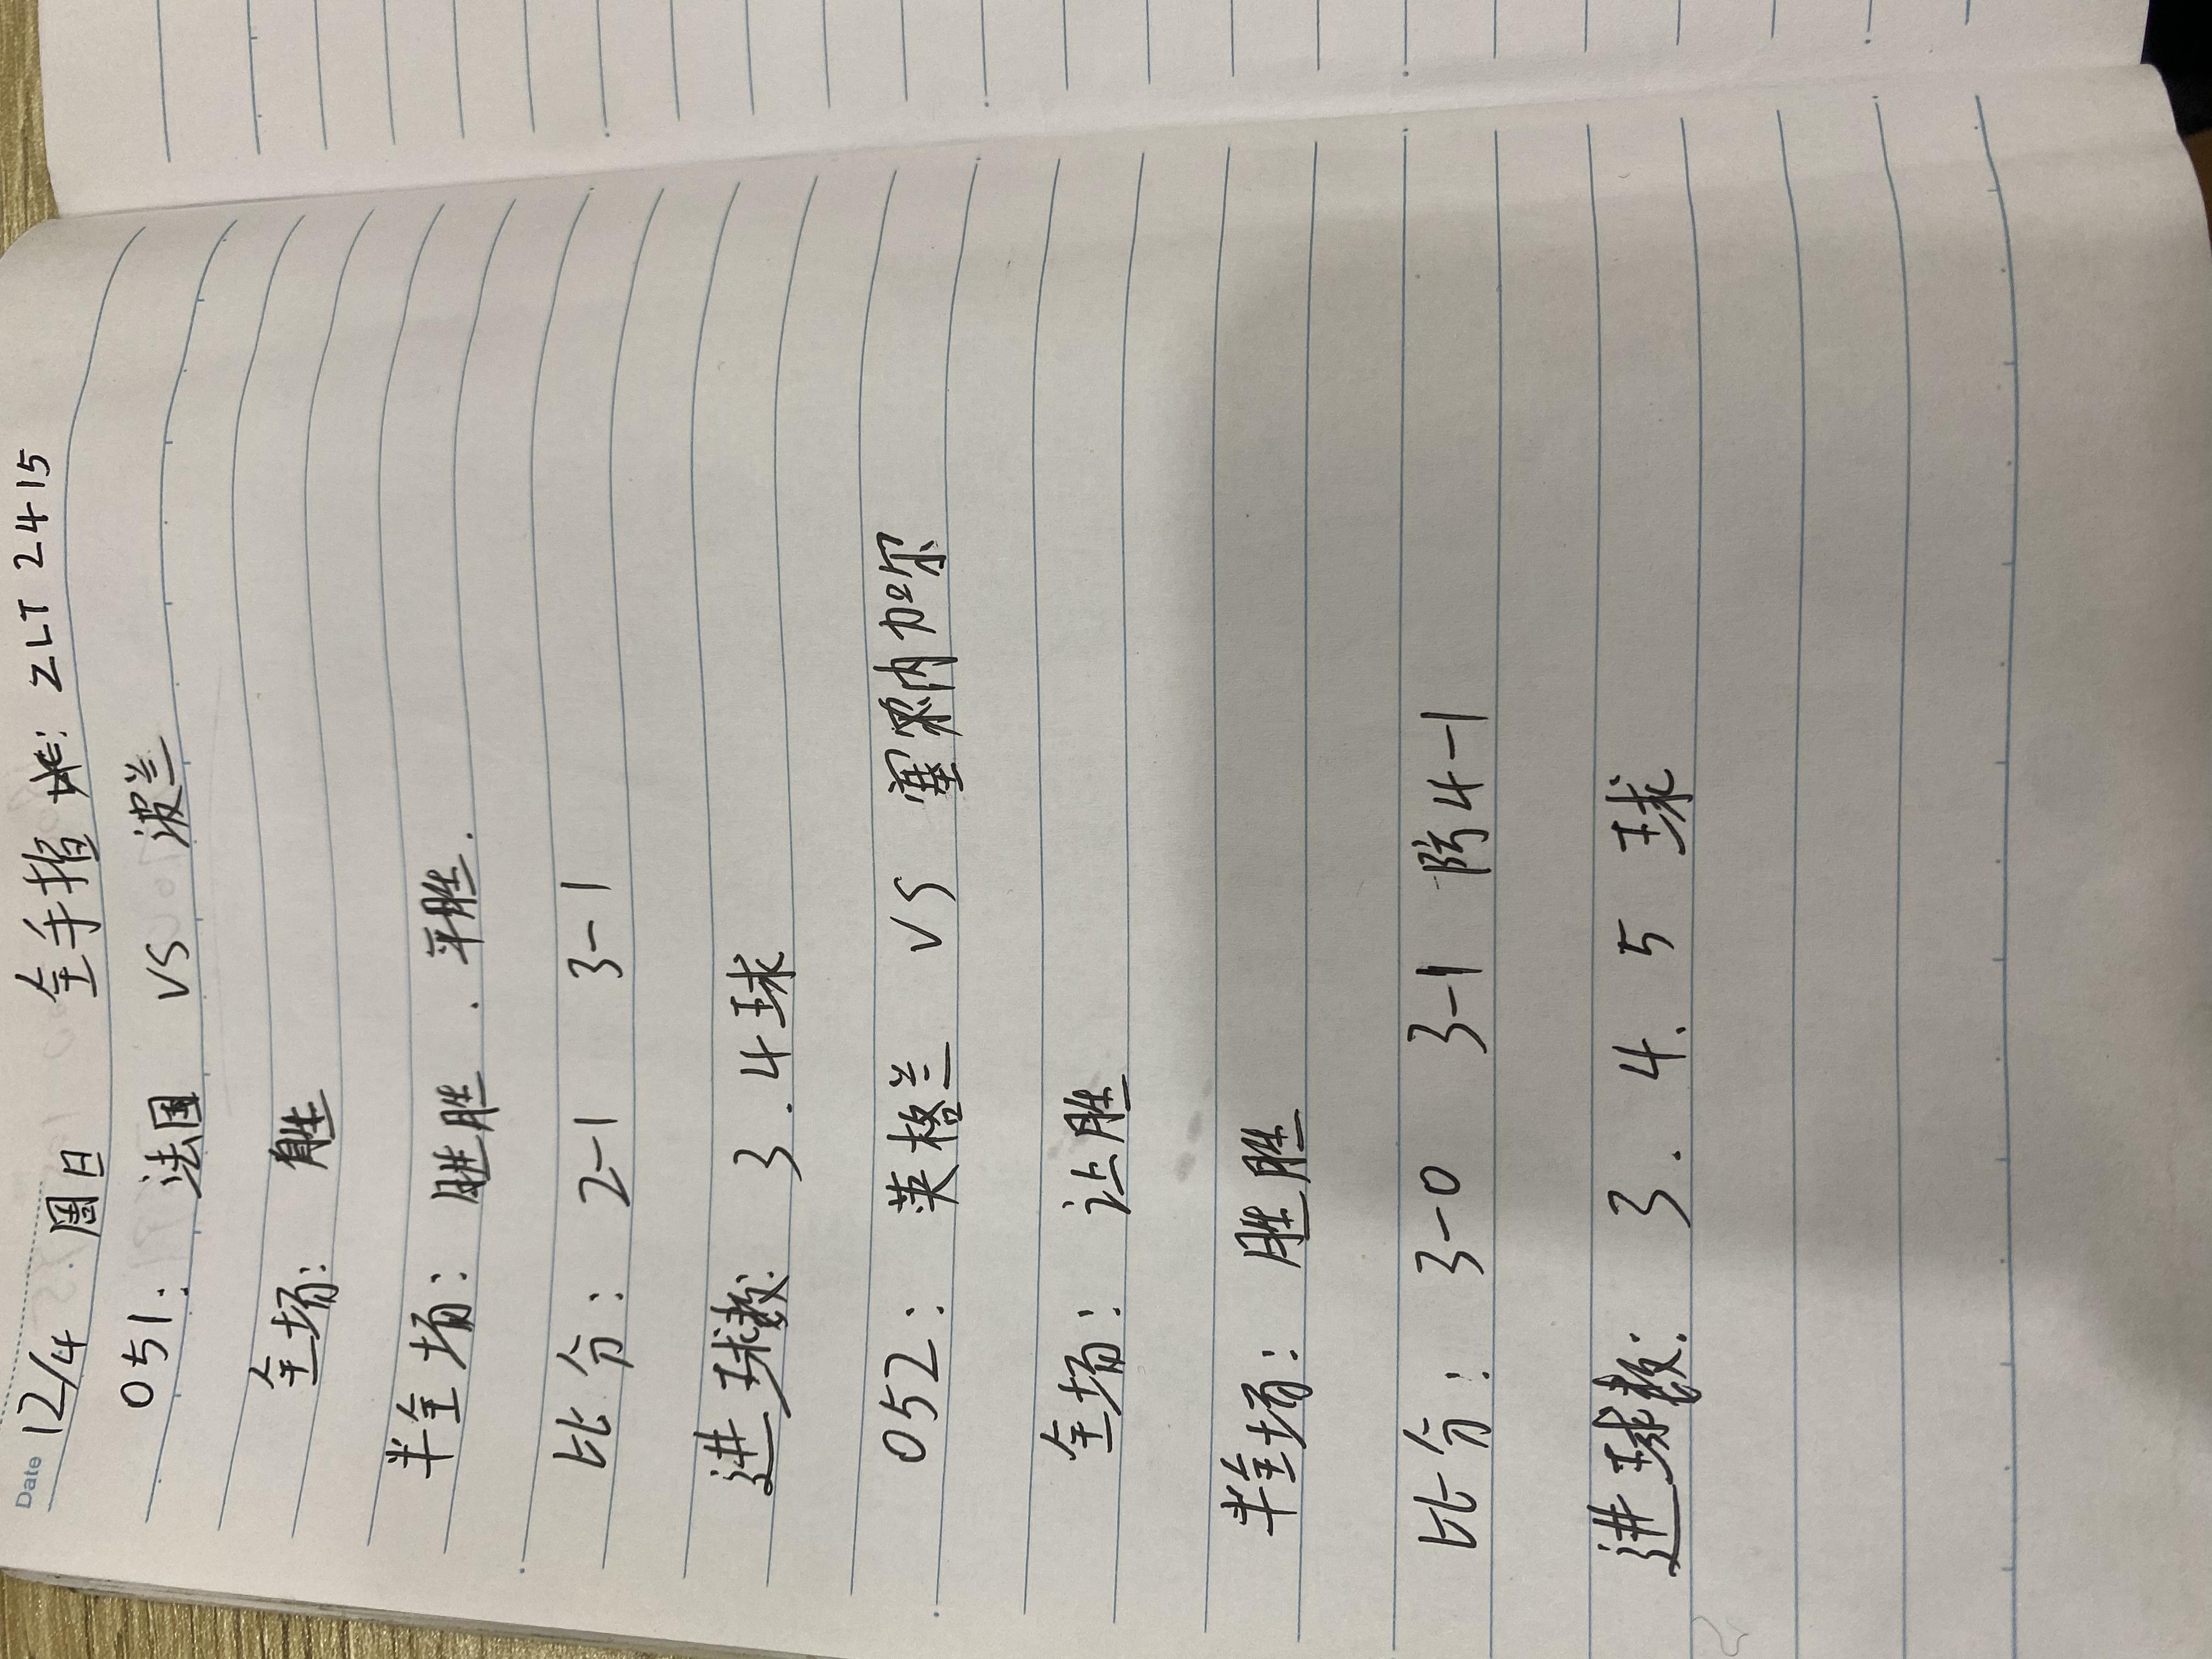 Date 12/4 周日 金手指 姚: ZLT 2415
051: 法国 VS 波兰
全场: 胜
半全场: 胜胜 . 平胜.
比分: 2-1 3-1
进球数: 3 . 4球
052: 英格兰 VS 塞内加尔
全场: 让胜
半全场: 胜胜
比分: 3-0 3-1 防4-1
进球数: 3 . 4. 5 球